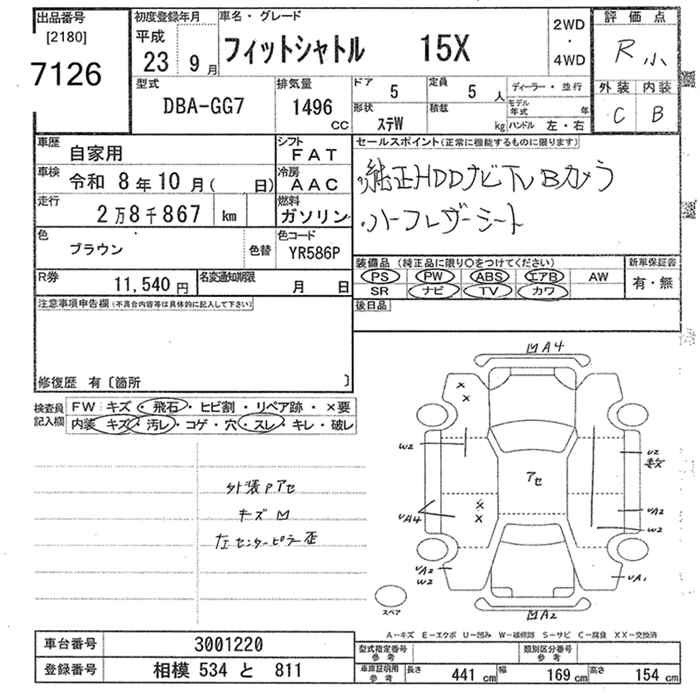 出品番号 初度登録年月 車名・グレード 2WD・4WD 評価点
[2180] 平成 23 9月 フィットシャトル 15X R 小
7126
型式 排気量 ドア 5 定員 5人 ディーラー・並行 外装 内装
DBA-GG7 1496 CC 形状 ステW 積載 kg モデル年式 年 ハンドル 左・右 C B
車歴 自家用 シフト FAT セールスポイント(正常に機能するものに限ります)
車検 令和 8年10月( 日) 冷房 AAC 純正HDDナビTV Bカメラ
走行 2万8千867 km 燃料 ガソリン ハーフレザーシート
色 ブラウン 色替 色コード YR586P
装備品(純正品に限り○をつけてください) 新車保証書
PS PW ABS エアB AW 有・無
SR ナビ TV カワ
R券 11,540円 名変通知期限 月 日
注意事項申告欄(不具合内容等は具体的に記入して下さい) 後日品
修復歴 有〔箇所 〕
検査員記入欄 FW:キズ・飛石・ヒビ割・リペア跡・×要
内装 キズ・汚レ・コゲ・穴・スレ・キレ・破レ
外装Pアセ
キズ凹
左センターピラー歪
凹A4
W2
アセ
U2
VA4
VA2
W2
VA2
W2
VA1
スペア
凹A2
A-キズ E-エクボ U-凹み W-補修跡 S-サビ C-腐食 XX-交換済
車台番号 3001220 型式指定番号 参考 類別区分番号 参考
登録番号 相模 534 と 811 車庫証明用参考 長さ 441cm 幅 169cm 高さ 154cm